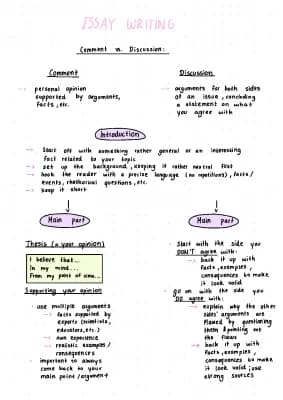 ESSAY WRITING
Comment vs. Discussion:
Comment
→ personal opinion
supported by arguments,
facts, etc.
Discussion
→ arguments for both sides
of an issue, concluding
a statement on what
you agree with
Introduction
→ Start off with something rather general or an interesting
fact related to your topic
→ set up the background, keeping it rather neutral first
→ hook the reader with a precise language (no repetitions), facts/
events, rhetorical questions, etc.
→ keep it short
Main part
Thesis (= your opinion)
I believe that...
In my mind...
From my point of view...
Supporting your opinion
• use multiple arguments
→ facts supported by
experts (scientists,
educators, etc.)
→ own experience
→ realistic examples /
consequences
• important to always
come back to your
main point/argument
Main part
• Start with the side you
DON'T agree with:
→ back it up with
facts, examples,
consequences to make
it look valid
• go on with the side you
DO agree with:
→ explain why the other
sides' arguments are
flawed by questioning
them & pointing out
the flaws
→ back it up with
facts, examples,
consequences to make
it look valid; use
strong sources